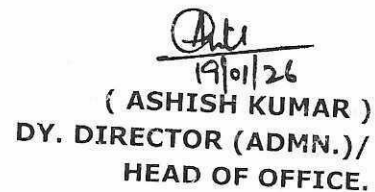 19/01/26
( ASHISH KUMAR )
DY. DIRECTOR (ADMN.)/
HEAD OF OFFICE.